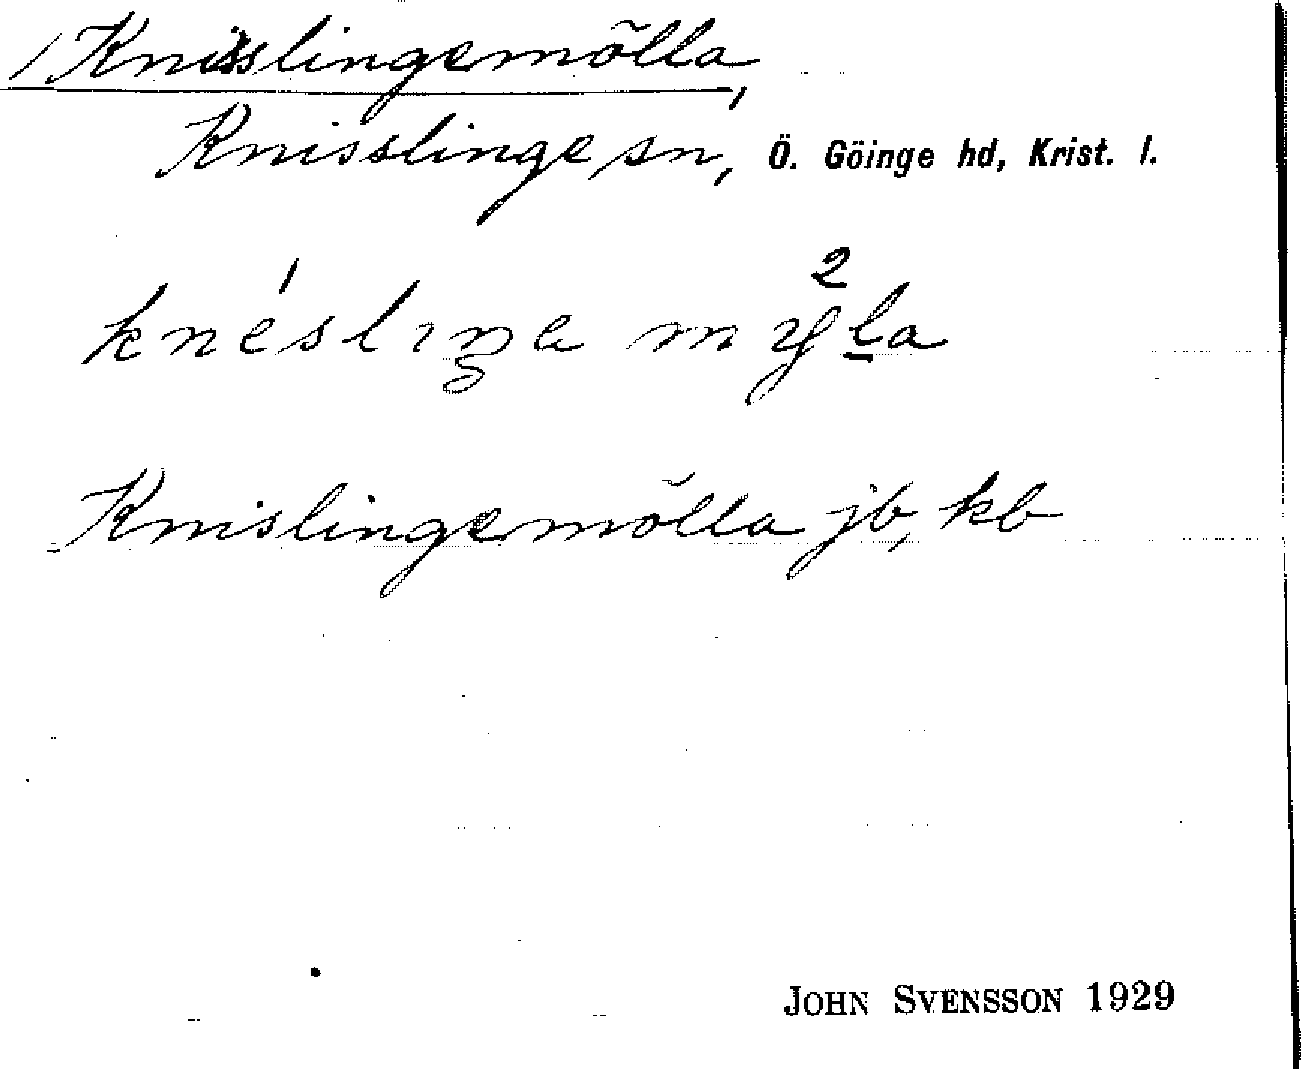 /Knisslingemölla,
Knisslinge sn, Ö. Göinge hd, Krist. l.
knéslıŋa mỳ²la
Knislingemölla jb, kb
JOHN SVENSSON 1929